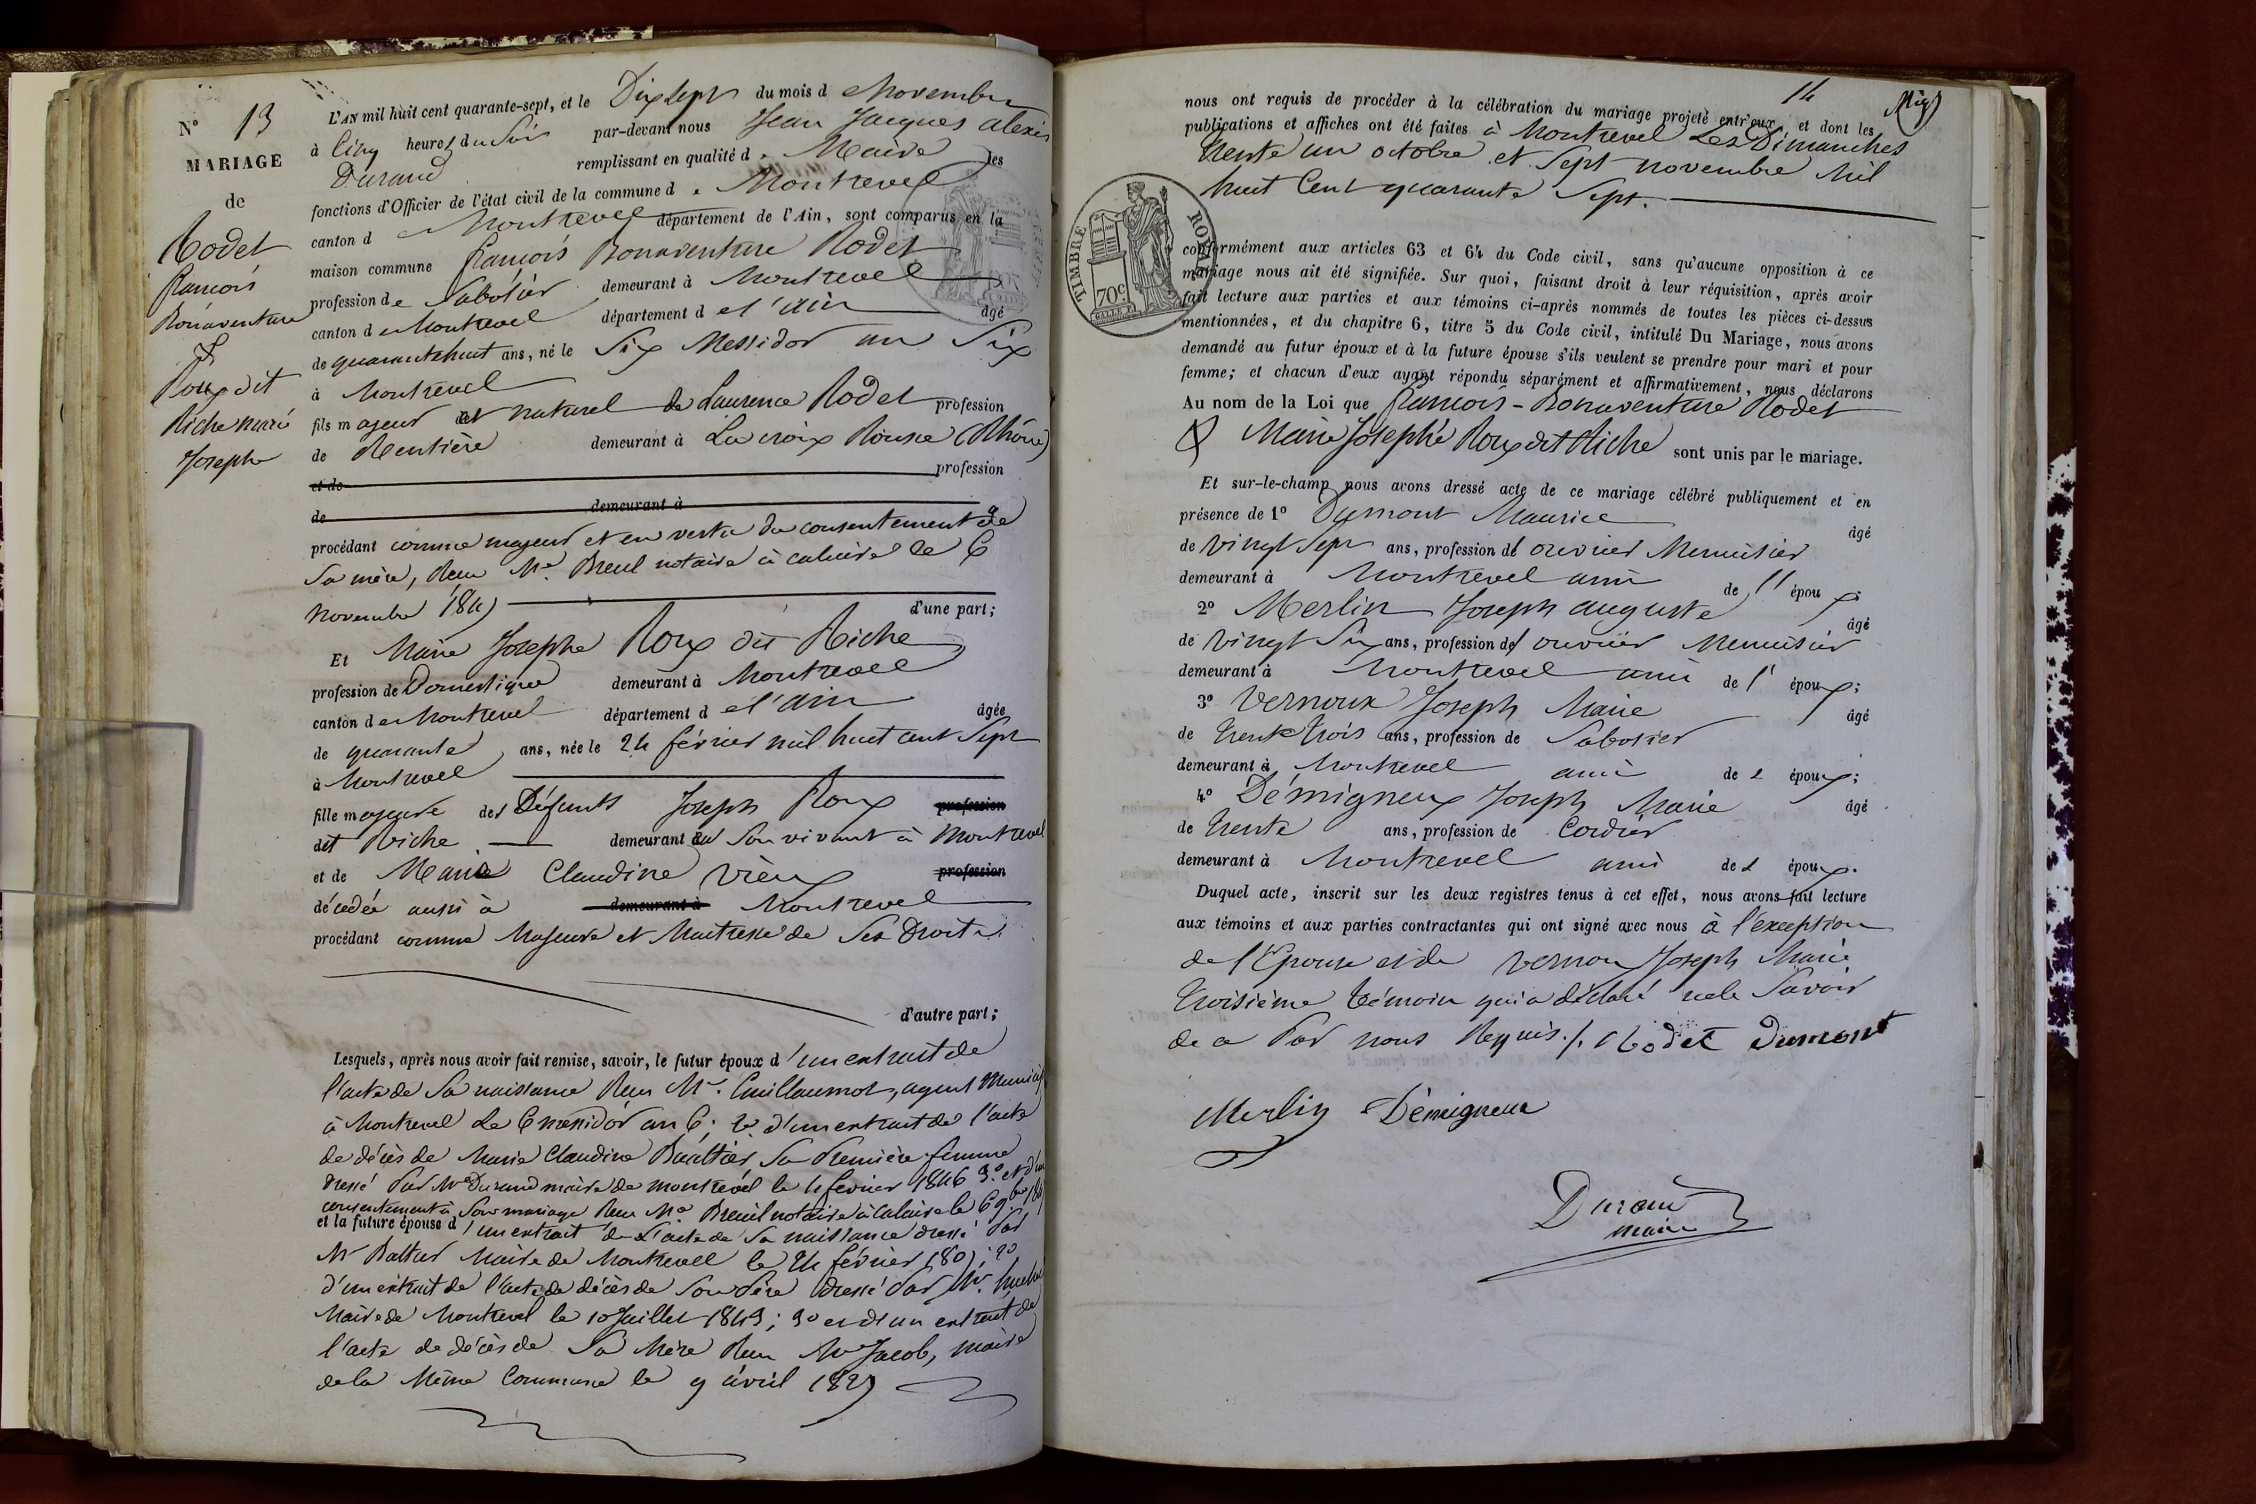 N° 13
MARIAGE
de
Rodet
françois
Bonaventure
&
Roux dit
Riche marie
Josephe
L'AN mil huit cent quarante-sept, et le Dix sept du mois d Novembre
à Cinq heures du Soir par-devant nous Jean Jacques alexis
Durand remplissant en qualité de Maire les
fonctions d'Officier de l'état civil de la commune de Montrevel
canton de Montrevel département de l'Ain, sont comparus en la
maison commune françois Bonaventure Rodet
profession de Sabotier demeurant à Montrevel
canton de Montrevel département de l'ain âgé
de quarante huit ans, né le Six Messidor an Six
à Montrevel
fils majeur et naturel de Laurence Rodet profession
de Rentière demeurant à La croix Rousse (Rhône)
et de profession
de demeurant à
procédant comme majeur et en vertu du consentement de
Sa mère, Reçu Me Breul notaire à caluire le 6
novembre 1847 d'une part;
Et Marie Josephe Roux dit Riche
profession de Domestique demeurant à Montrevel
canton de Montrevel département de l'ain âgée
de quarante ans, née le 24 février mil huit cent Sept
à Montrevel
fille majeure des Défunts Joseph Roux profession
dit Riche demeurant en Son vivant à Montrevel
et de Marie Claudine Vieux profession
décédée aussi à demeurant à Montrevel
procédant comme Majeure et Maitresse de Ses Droits
d'autre part;
Lesquels, après nous avoir fait remise, savoir, le futur époux d'un extrait de
l'acte de Sa naissance Reçu Mr. Guillaumot, agent Municip
à Montrevel Le 6 messidor an 6; 2° d'un extrait de l'acte
de décès de Marie Claudine Sa Première femme
dressé Par Mr Durand maire de montrevel le 4 février 1846 3° et d'un
consentement à Son mariage Reçu Me Breuil notaire à Caluire le 6 9bre
et la future épouse d'un extrait de L'acte de Sa naissance dressé Par
Mr Maire de Montrevel le 24 février 1807; 2°
d'un extrait de l'acte de décès de Son Père dressé Par Mr.
Maire de Montrevel le 10 Juillet 1843; 3° et d'un extrait de
l'acte de décès de Sa Mère Reçu Mr Jacob, maire
de la Même Commune le 9 avril 1827
14
nous ont requis de procéder à la célébration du mariage projeté entr'eux, et dont les
publications et affiches ont été faites à Montrevel Les Dimanches
trente un octobre et Sept novembre Mil
huit Cent quarante Sept.
TIMBRE ROYAL
70c.
conformément aux articles 63 et 64 du Code civil, sans qu'aucune opposition à ce
mariage nous ait été signifiée. Sur quoi, faisant droit à leur réquisition, après avoir
fait lecture aux parties et aux témoins ci-après nommés de toutes les pièces ci-dessus
mentionnées, et du chapitre 6, titre 5 du Code civil, intitulé Du Mariage, nous avons
demandé au futur époux et à la future épouse s'ils veulent se prendre pour mari et pour
femme; et chacun d'eux ayant répondu séparément et affirmativement, nous déclarons
Au nom de la Loi que françois-Bonaventure Rodet
& Marie Josephe Roux dit Riche sont unis par le mariage.
Et sur-le-champ nous avons dressé acte de ce mariage célébré publiquement et en
présence de 1° Dumont Maurice âgé
de vingt Sept ans, profession d'ouvrier Menuisier
demeurant à Montrevel ami de l' époux.
2° Merlin Joseph auguste âgé
de vingt Six ans, profession d'ouvrier Menuisier
demeurant à Montrevel ami de l' époux;
3° Vernoux Joseph Marie âgé
de trente trois ans, profession de Sabotier
demeurant à Montrevel ami de l époux;
4° Démigneux Joseph Marie âgé
de trente ans, profession de Cordier
demeurant à Montrevel ami de l époux.
Duquel acte, inscrit sur les deux registres tenus à cet effet, nous avons fait lecture
aux témoins et aux parties contractantes qui ont signé avec nous à l'exception
de l'Epouse et de vernoux Joseph Marie
troisième témoin qui a déclaré ne le Savoir
de ce Par nous Requis./. Rodet Dumont
Merlin Démigneux
Durand
maire